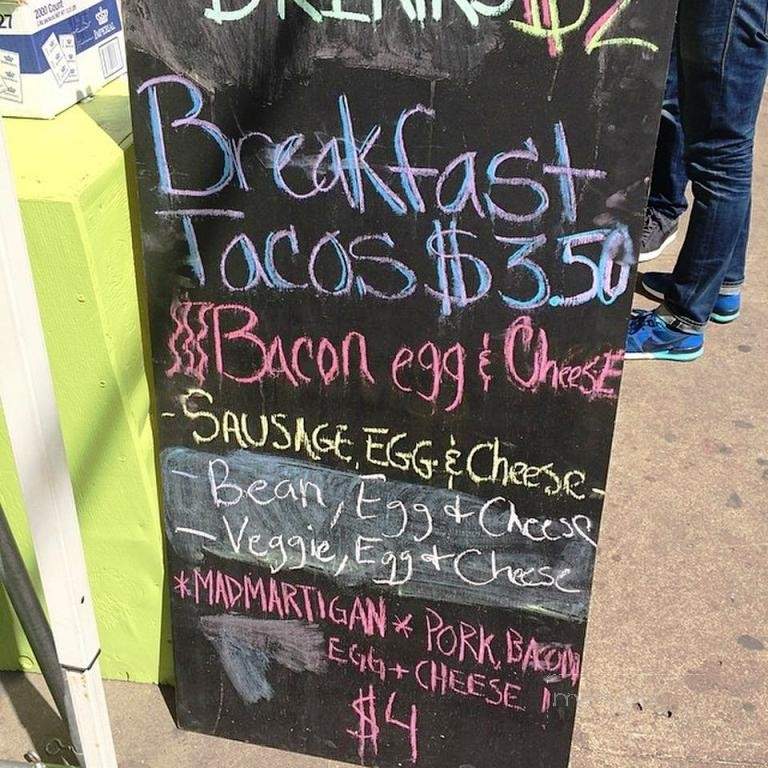 27
2000 Count
IMPERIAL
DRINKS $2
Breakfast
Tacos $3.50
Bacon egg & Cheese
- SAUSAGE, EGG & Cheese -
- Bean, Egg + Cheese
- Veggie, Egg + Cheese
*MADMARTIGAN* PORK, BACON
EGG + CHEESE
$4